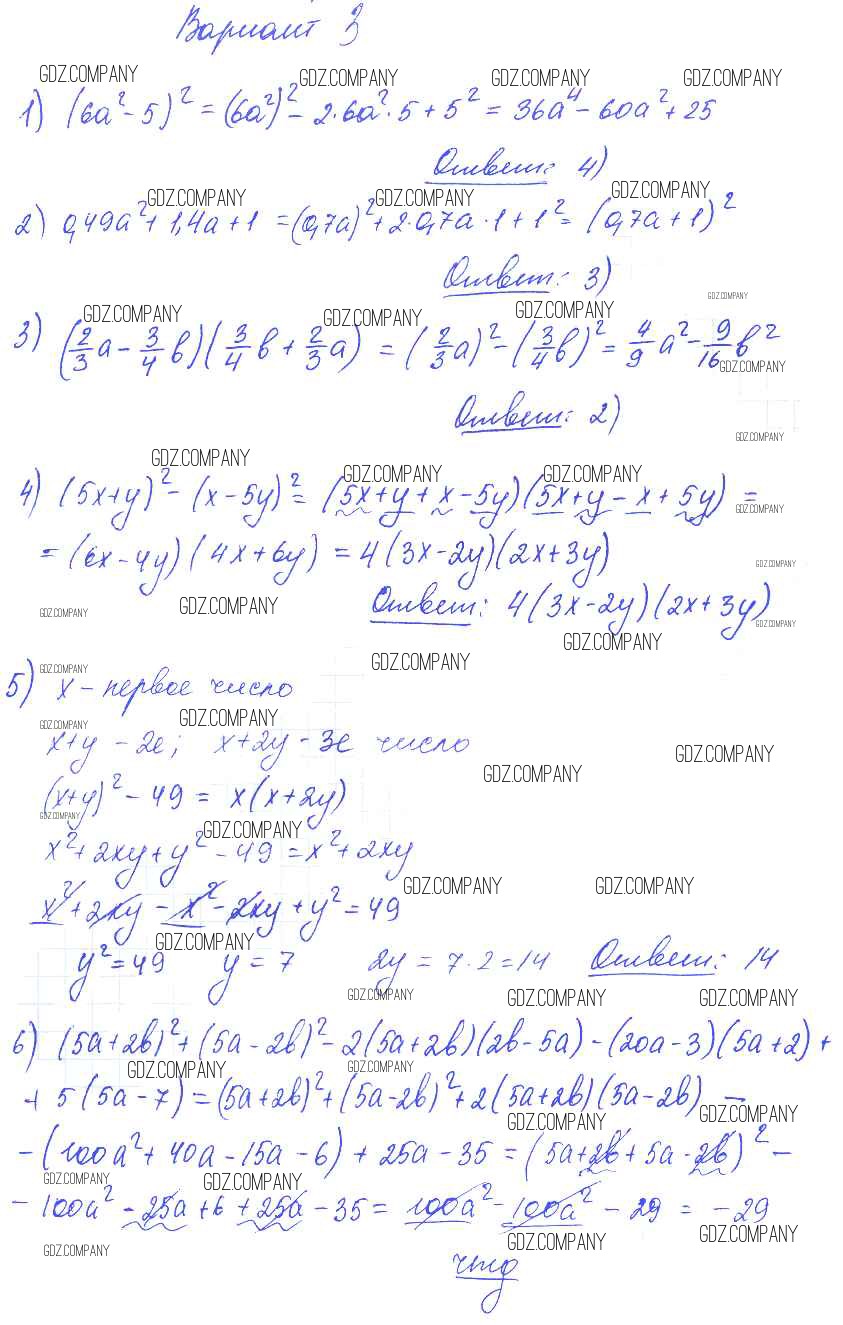 Вариант 3
GDZ.COMPANY GDZ.COMPANY GDZ.COMPANY GDZ.COMPANY
1) (6a² - 5)² = (6a²)² - 2·6a²·5 + 5² = 36a⁴ - 60a² + 25
Ответ: 4)
GDZ.COMPANY GDZ.COMPANY GDZ.COMPANY
2) 0,49a² + 1,4a + 1 = (0,7a)² + 2·0,7a·1 + 1² = (0,7a + 1)²
Ответ: 3)
GDZ.COMPANY
GDZ.COMPANY GDZ.COMPANY GDZ.COMPANY
3) (2/3 a - 3/4 в)(3/4 в + 2/3 a) = (2/3 a)² - (3/4 в)² = 4/9 a² - 9/16 в²
GDZ.COMPANY
Ответ: 2)
GDZ.COMPANY
GDZ.COMPANY GDZ.COMPANY GDZ.COMPANY
4) (5x+y)² - (x - 5y)² = (5x + y + x - 5y)(5x + y - x + 5y) =
GDZ.COMPANY
= (6x - 4y)(4x + 6y) = 4(3x - 2y)(2x + 3y)
GDZ.COMPANY
GDZ.COMPANY GDZ.COMPANY Ответ: 4(3x - 2y)(2x + 3y)
GDZ.COMPANY
GDZ.COMPANY
GDZ.COMPANY GDZ.COMPANY
5) x - первое число
GDZ.COMPANY GDZ.COMPANY
x+y - 2е; x+2y - 3е число
GDZ.COMPANY
GDZ.COMPANY
(x+y)² - 49 = x(x + 2y)
GDZ.COMPANY GDZ.COMPANY
x² + 2xy + y² - 49 = x² + 2xy
GDZ.COMPANY GDZ.COMPANY
x² + 2xy - x² - 2xy + y² = 49
GDZ.COMPANY
y² = 49 y = 7 2y = 7·2 = 14 Ответ: 14
GDZ.COMPANY GDZ.COMPANY GDZ.COMPANY
6) (5a+2в)² + (5a - 2в)² - 2(5a+2в)(2в - 5a) - (20a - 3)(5a + 2) +
GDZ.COMPANY GDZ.COMPANY
+ 5(5a - 7) = (5a+2в)² + (5a-2в)² + 2(5a+2в)(5a - 2в) -
GDZ.COMPANY GDZ.COMPANY
- (100a² + 40a - 15a - 6) + 25a - 35 = (5a + 2в + 5a - 2в)² -
GDZ.COMPANY GDZ.COMPANY
- 100a² - 25a + 6 + 25a - 35 = 100a² - 100a² - 29 = -29
GDZ.COMPANY GDZ.COMPANY GDZ.COMPANY
чтд